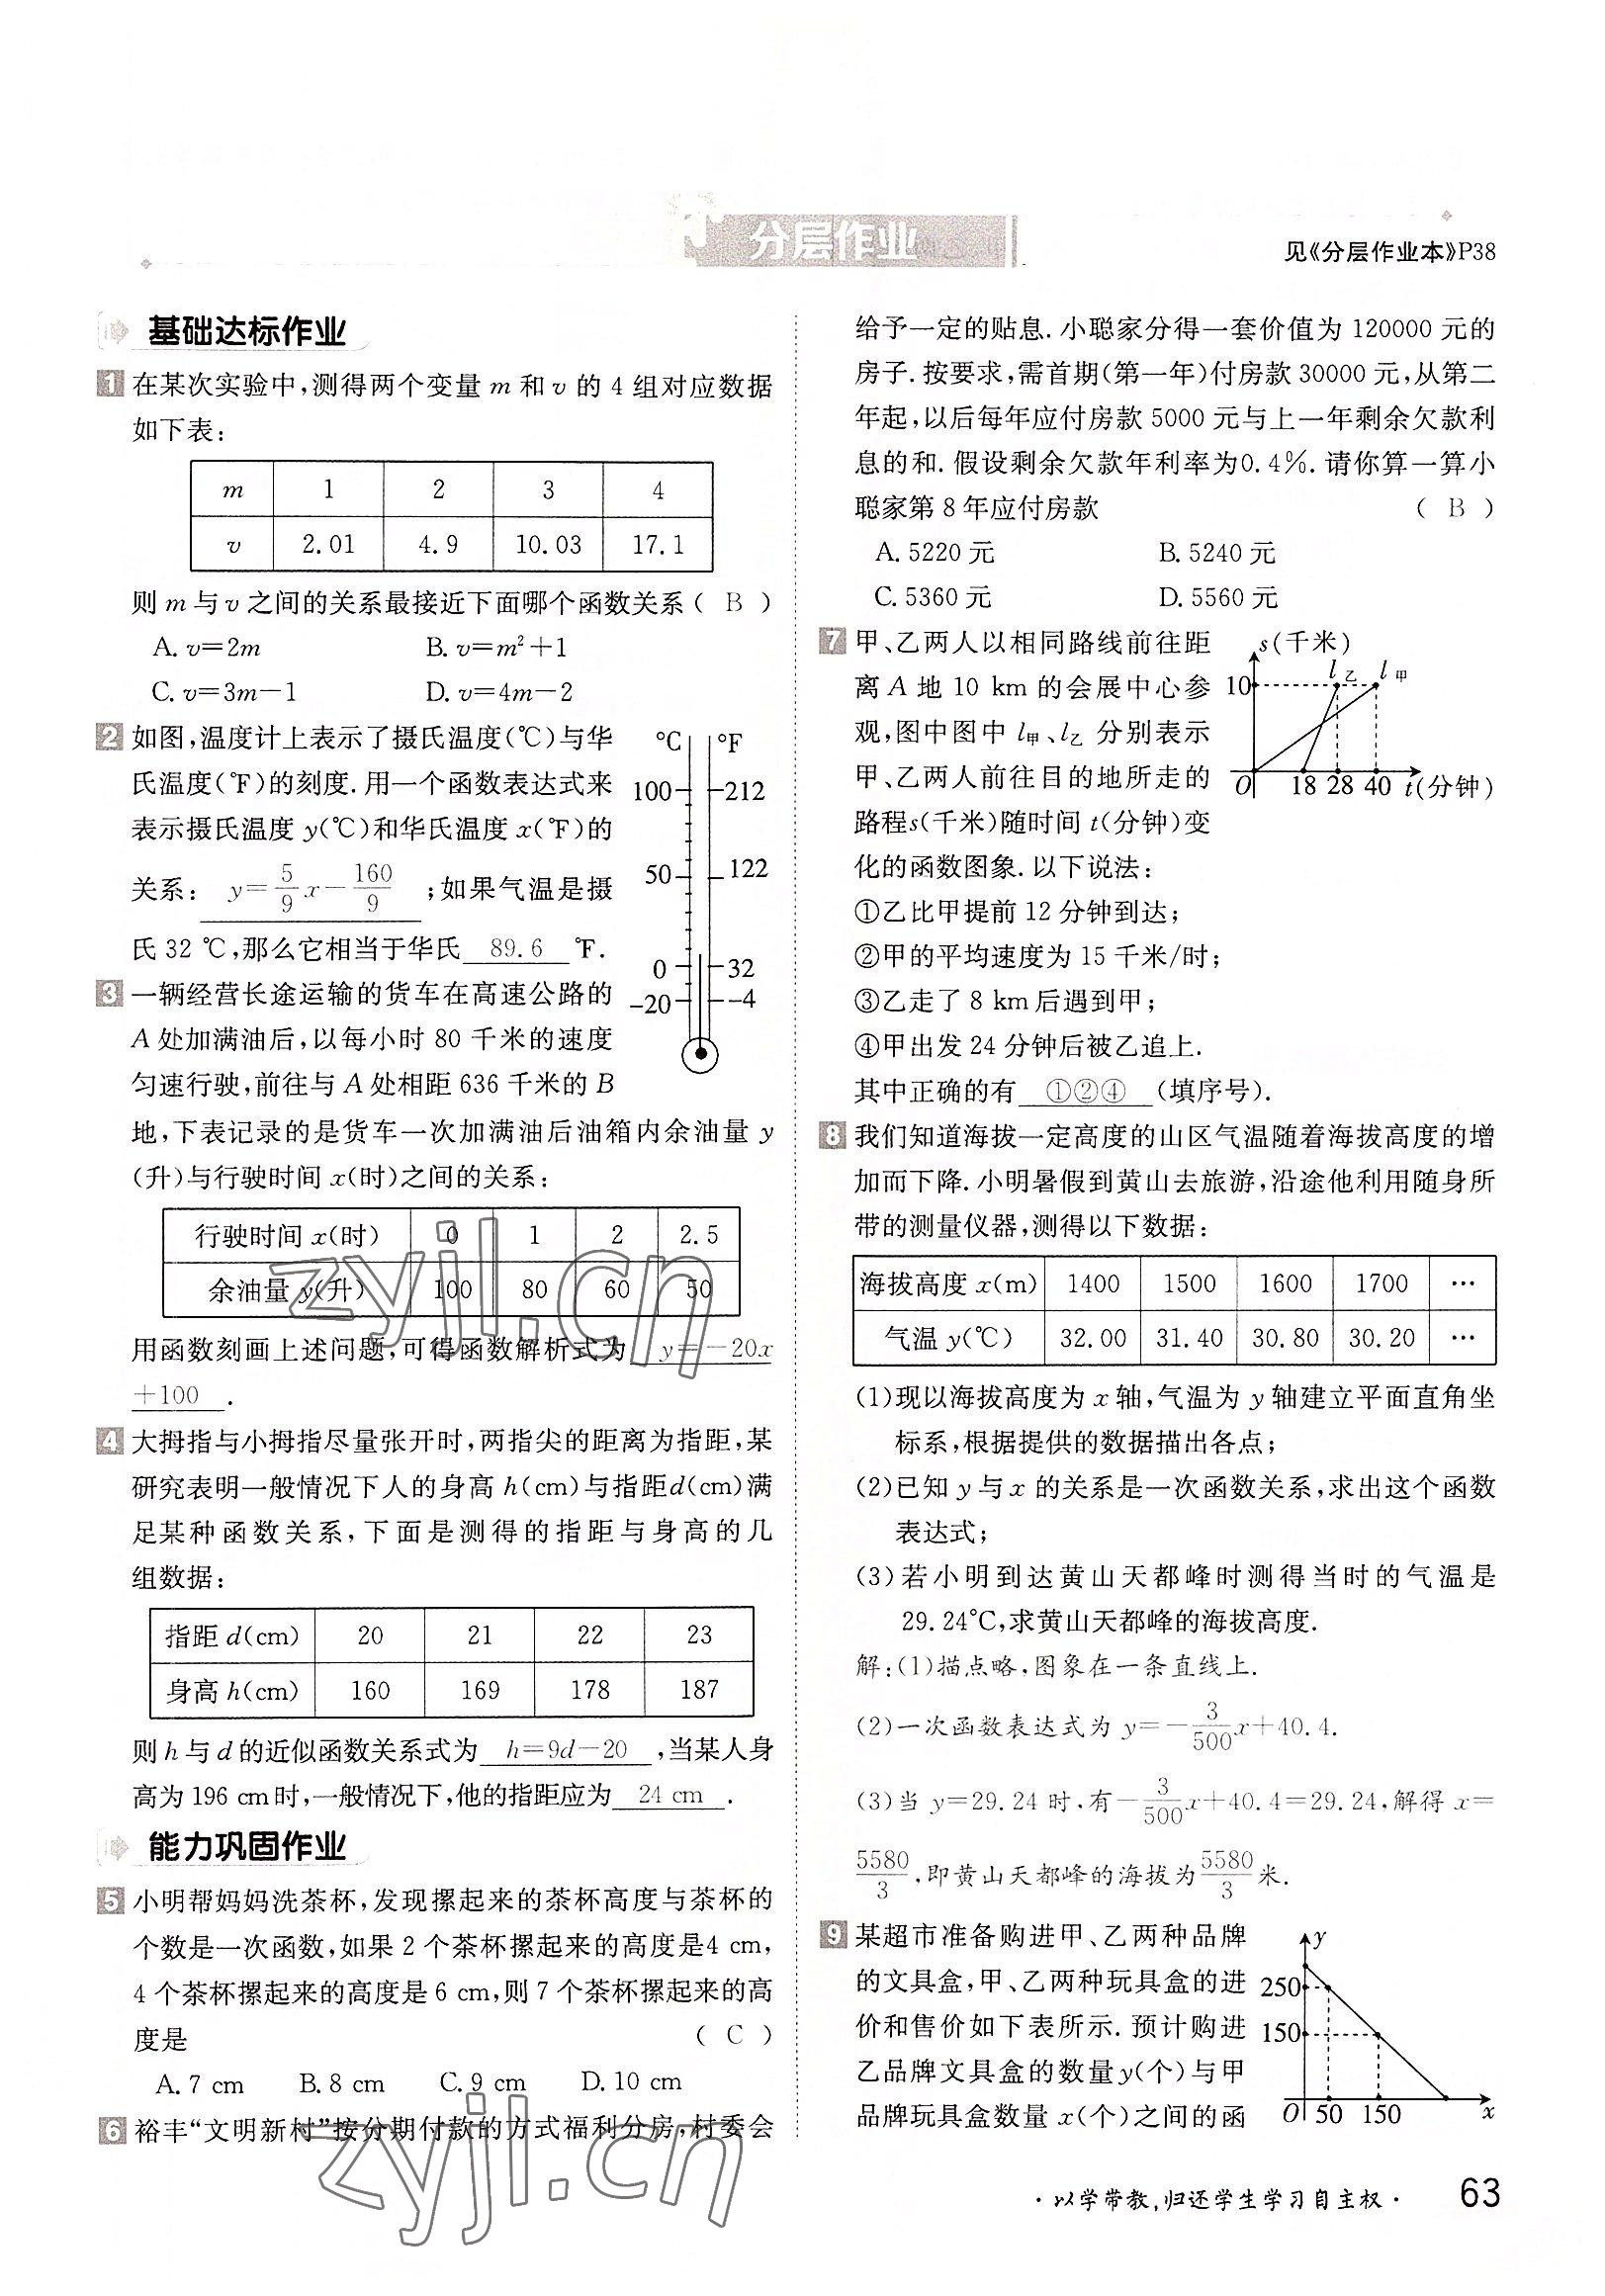 分层作业
见《分层作业本》P38
基础达标作业
1 在某次实验中,测得两个变量 m 和 v 的 4 组对应数据
如下表:
m 1 2 3 4
v 2.01 4.9 10.03 17.1
则 m 与 v 之间的关系最接近下面哪个函数关系 ( B )
A. v=2m B. v=m²+1
C. v=3m-1 D. v=4m-2
2 如图,温度计上表示了摄氏温度(℃)与华
氏温度(℉)的刻度. 用一个函数表达式来
表示摄氏温度 y(℃)和华氏温度 x(℉)的
关系: y=5/9 x-160/9 ;如果气温是摄
氏 32 ℃,那么它相当于华氏 89.6 ℉.
℃ ℉
100 212
50 122
0 32
-20 -4
3 一辆经营长途运输的货车在高速公路的
A 处加满油后,以每小时 80 千米的速度
匀速行驶,前往与 A 处相距 636 千米的 B
地,下表记录的是货车一次加满油后油箱内余油量 y
(升)与行驶时间 x(时)之间的关系:
行驶时间 x(时) 0 1 2 2.5
余油量 y(升) 100 80 60 50
用函数刻画上述问题,可得函数解析式为 y=-20x
+100 .
4 大拇指与小拇指尽量张开时,两指尖的距离为指距,某
研究表明一般情况下人的身高 h(cm)与指距d(cm)满
足某种函数关系,下面是测得的指距与身高的几
组数据:
指距 d(cm) 20 21 22 23
身高 h(cm) 160 169 178 187
则 h 与 d 的近似函数关系式为 h=9d-20 ,当某人身
高为 196 cm时,一般情况下,他的指距应为 24 cm .
能力巩固作业
5 小明帮妈妈洗茶杯,发现摞起来的茶杯高度与茶杯的
个数是一次函数,如果 2 个茶杯摞起来的高度是4 cm,
4 个茶杯摞起来的高度是 6 cm,则 7 个茶杯摞起来的高
度是 ( C )
A. 7 cm B. 8 cm C. 9 cm D. 10 cm
6 裕丰“文明新村”按分期付款的方式福利分房,村委会
给予一定的贴息. 小聪家分得一套价值为 120000 元的
房子. 按要求,需首期(第一年)付房款 30000 元,从第二
年起,以后每年应付房款 5000 元与上一年剩余欠款利
息的和. 假设剩余欠款年利率为0.4%. 请你算一算小
聪家第 8 年应付房款 ( B )
A. 5220 元 B. 5240 元
C. 5360 元 D. 5560 元
7 甲、乙两人以相同路线前往距
离 A 地 10 km 的会展中心参
观,图中图中 l甲、l乙 分别表示
甲、乙两人前往目的地所走的
路程s(千米)随时间 t(分钟)变
化的函数图象. 以下说法:
①乙比甲提前 12 分钟到达;
②甲的平均速度为 15 千米/时;
③乙走了 8 km 后遇到甲;
④甲出发 24 分钟后被乙追上.
其中正确的有 ①②④ (填序号).
s(千米)
l乙 l甲
10
O 18 28 40 t(分钟)
8 我们知道海拔一定高度的山区气温随着海拔高度的增
加而下降. 小明暑假到黄山去旅游,沿途他利用随身所
带的测量仪器,测得以下数据:
海拔高度 x(m) 1400 1500 1600 1700 …
气温 y(℃) 32.00 31.40 30.80 30.20 …
(1)现以海拔高度为 x 轴,气温为 y 轴建立平面直角坐
标系,根据提供的数据描出各点;
(2)已知 y 与 x 的关系是一次函数关系,求出这个函数
表达式;
(3)若小明到达黄山天都峰时测得当时的气温是
29.24℃,求黄山天都峰的海拔高度.
解:(1)描点略,图象在一条直线上.
(2)一次函数表达式为 y=-3/500 x+40.4.
(3)当 y=29.24 时,有-3/500 x+40.4=29.24,解得 x=
5580/3 ,即黄山天都峰的海拔为 5580/3 米.
9 某超市准备购进甲、乙两种品牌
的文具盒,甲、乙两种玩具盒的进
价和售价如下表所示. 预计购进
乙品牌文具盒的数量 y(个)与甲
品牌玩具盒数量 x(个)之间的函
y
250
150
O 50 150 x
zyjl.cn
zyjl.cn
·以学带教,归还学生学习自主权·
63